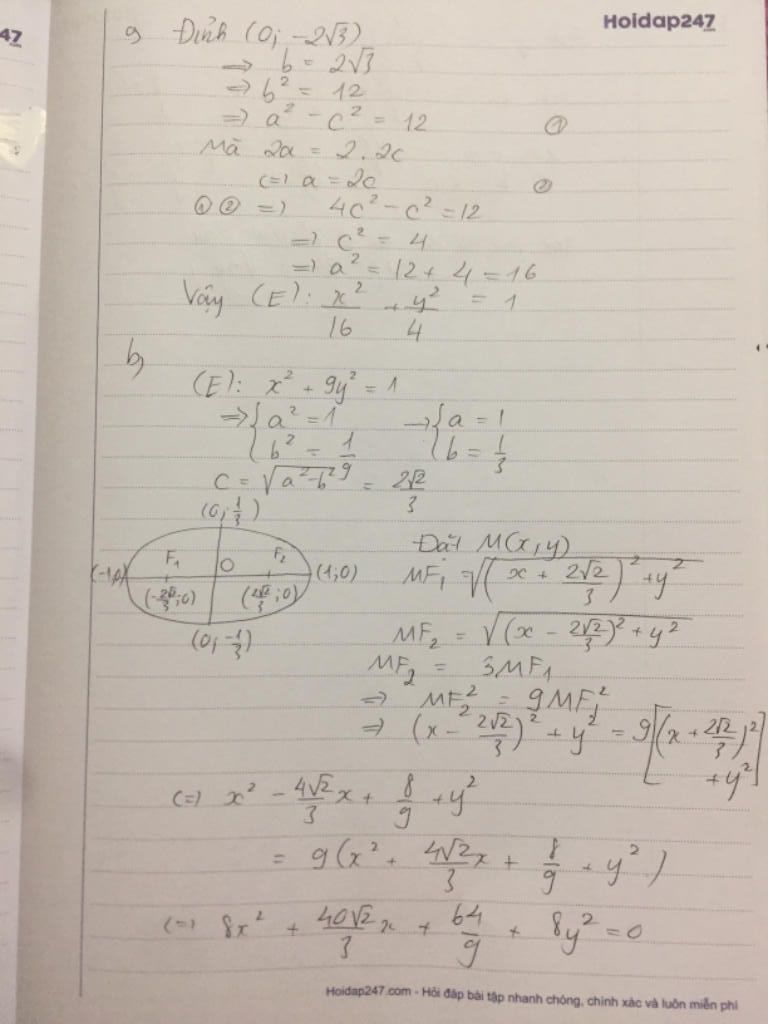 47
Hoidap247
a, Đỉnh (0; -2√3)
=> b = 2√3
=> b² = 12
=> a² - c² = 12 ①
Mà 2a = 2.2c
<=> a = 2c ②
① ② => 4c² - c² = 12
=> c² = 4
=> a² = 12 + 4 = 16
Vậy (E): x²/16 + y²/4 = 1
b,
(E): x² + 9y² = 1
=> { a² = 1 → { a = 1
{ b² = 1/9 { b = 1/3
c = √(a²-b²) = 2√2/3
(0; 1/3)
Đặt M(x,y)
F₁ O F₂
(-1,0) (1;0)
MF₁ = √((x + 2√2/3)² + y²)
(-2√2/3;0) (2√2/3;0)
(0; -1/3)
MF₂ = √((x - 2√2/3)² + y²)
MF₂ = 3MF₁
=> MF₂² = 9MF₁²
=> (x - 2√2/3)² + y² = 9[(x + 2√2/3)² + y²]
<=> x² - 4√2/3 x + 8/9 + y²
= 9(x² + 4√2/3 x + 8/9 + y²)
<=> 8x² + 40√2/3 x + 64/9 + 8y² = 0
Hoidap247.com - Hỏi đáp bài tập nhanh chóng, chính xác và luôn miễn phí